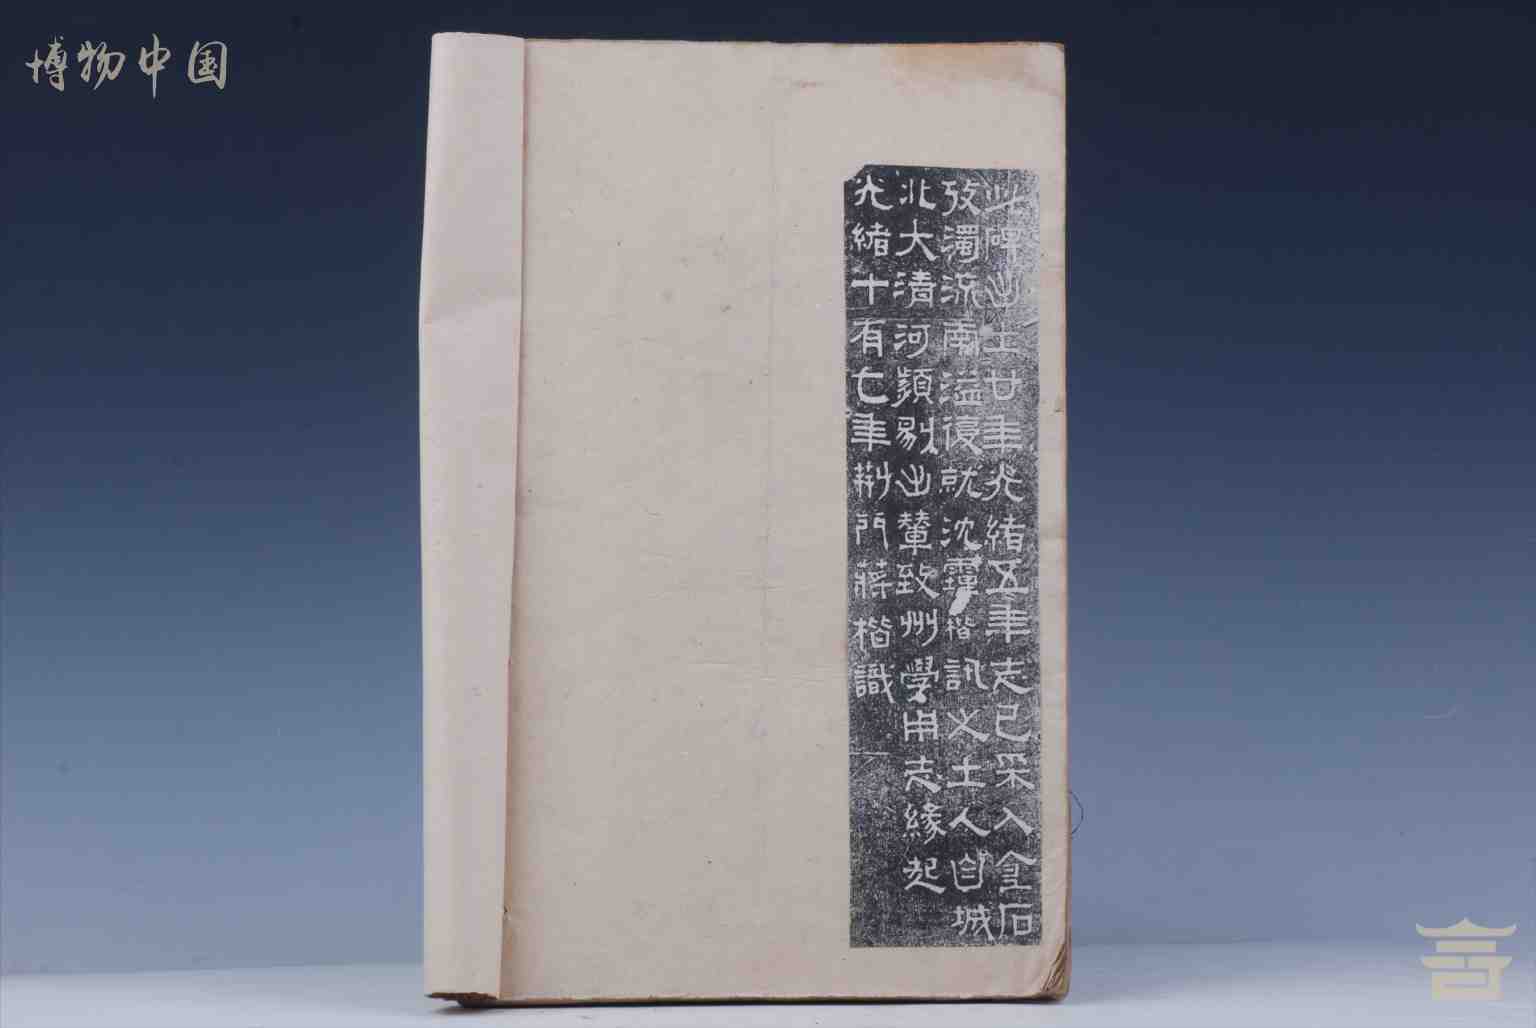 博物中国
此碑出土廿年光緒五年志已采入金石
攷濁流南溢復就沈霾楷訊之土人自城
北大清河潁剔出輦致州學用志緣起
光緒十有七年荊門蔣楷識